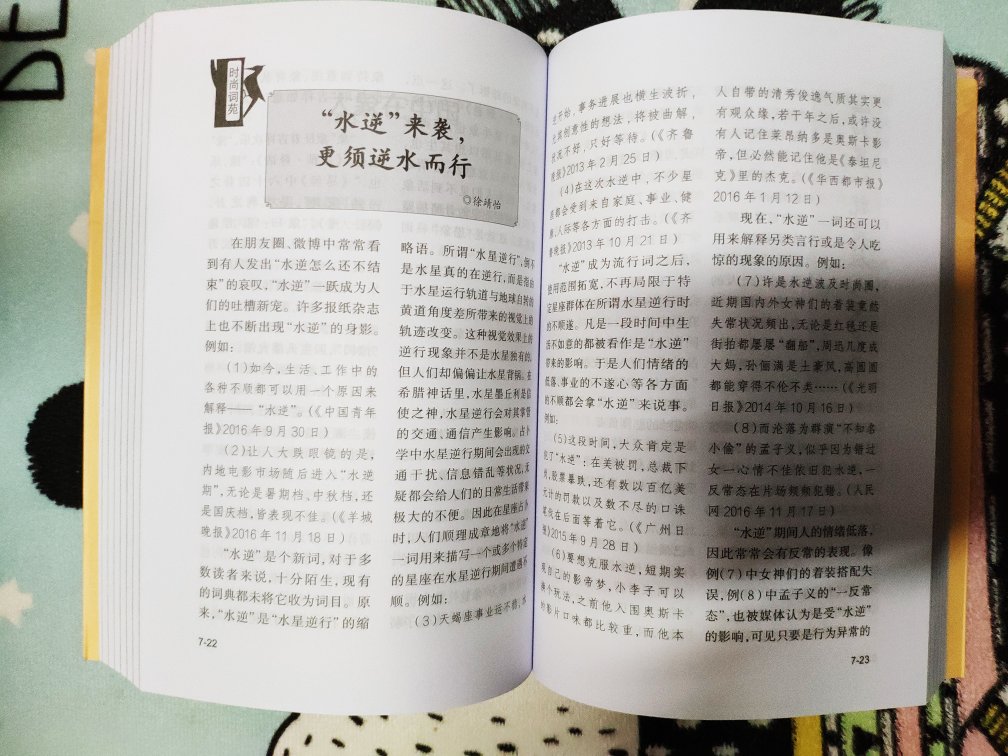 DE
时尚词苑
“水逆”来袭，
更须逆水而行
◎徐靖怡
在朋友圈、微博中常常看
到有人发出“水逆怎么还不结
束”的哀叹，“水逆”一跃成为人
们的吐槽新宠。许多报纸杂志
上也不断出现“水逆”的身影。
例如：
（1）如今，生活、工作中的
各种不顺都可以用一个原因来
解释——“水逆”。（《中国青年
报》2016年9月30日）
（2）让人大跌眼镜的是，
内地电影市场随后进入“水逆
期”，无论是暑期档、中秋档，还
是国庆档，皆表现不佳。（《羊城
晚报》2016年11月18日）
“水逆”是个新词，对于多
数读者来说，十分陌生，现有
的词典都未将它收为词目。原
来，“水逆”是“水星逆行”的缩
略语。所谓“水星逆行”，倒不
是水星真的在逆行，而是指由
于水星运行轨道与地球自转的
黄道角度差所带来的视觉上的
轨迹改变。这种视觉效果上的
逆行现象并不是水星独有的，
但人们却偏偏让水星背锅。在
希腊神话里，水星墨丘利是信
使之神，水星逆行会对其掌管
的交通、通信产生影响。占卜
学中水星逆行期间会出现的交
通干扰、信息错乱等状况，无
疑都会给人们的日常生活带来
极大的不便。因此在星座占卜
时，人们顺理成章地将“水逆”
一词用来描写一个或多个特定
的星座在水星逆行期间遭遇不
顺。例如：
（3）天蝎座事业运不稳，水
逆开始，事务进展也横生波折，
充满创意性的想法，将被曲解，
状况不好，只好等待。（《齐鲁
晚报》2013年2月25日）
（4）在这次水逆中，不少星
座都会受到来自家庭、事业、健
康、人际等各方面的打击。（《齐
鲁晚报》2013年10月21日）
“水逆”成为流行词之后，
使用范围拓宽，不再局限于特
定星座群体在所谓水星逆行时
的不顺遂。凡是一段时间中生
活不如意的都被看作是“水逆”
带来的影响。于是人们情绪的
低落、事业的不遂心等各方面
的不顺都会拿“水逆”来说事。
例如：
（5）这段时间，大众肯定是
犯了“水逆”：在美被罚，总裁下
课，股票暴跌，还有数以百亿美
元计的罚款以及数不尽的口诛
笔伐在后面等着它。（《广州日
报》2015年9月28日）
（6）要想克服水逆，短期实
现自己的影帝梦，小李子可以
换个玩法，之前他入围奥斯卡
的影片口味都比较重，而他本
人自带的清秀俊逸气质其实更
有观众缘，若干年之后，或许没
有人记住莱昂纳多是奥斯卡影
帝，但必然能记住他是《泰坦尼
克》里的杰克。（《华西都市报》
2016年1月12日）
现在，“水逆”一词还可以
用来解释另类言行或是令人吃
惊的现象的原因。例如：
（7）许是水逆波及时尚圈，
近期国内外女神们的着装竟然
失常状况频出，无论是红毯还是
街拍都屡屡“翻船”，周迅几度成
大妈，孙俪满是土豪风，高圆圆
都能穿得不伦不类……（《光明
日报》2014年10月16日）
（8）而沦落为群演“不知名
小偷”的孟子义，似乎因为错过
女一心情不佳依旧犯水逆，一
反常态在片场频频犯错。（人民
网2016年11月17日）
“水逆”期间人的情绪低落，
因此常常会有反常的表现。像
例（7）中女神们的着装搭配失
误，例（8）中孟子义的“一反常
态”，也被媒体认为是受“水逆”
的影响，可见只要是行为异常的
7-22
7-23